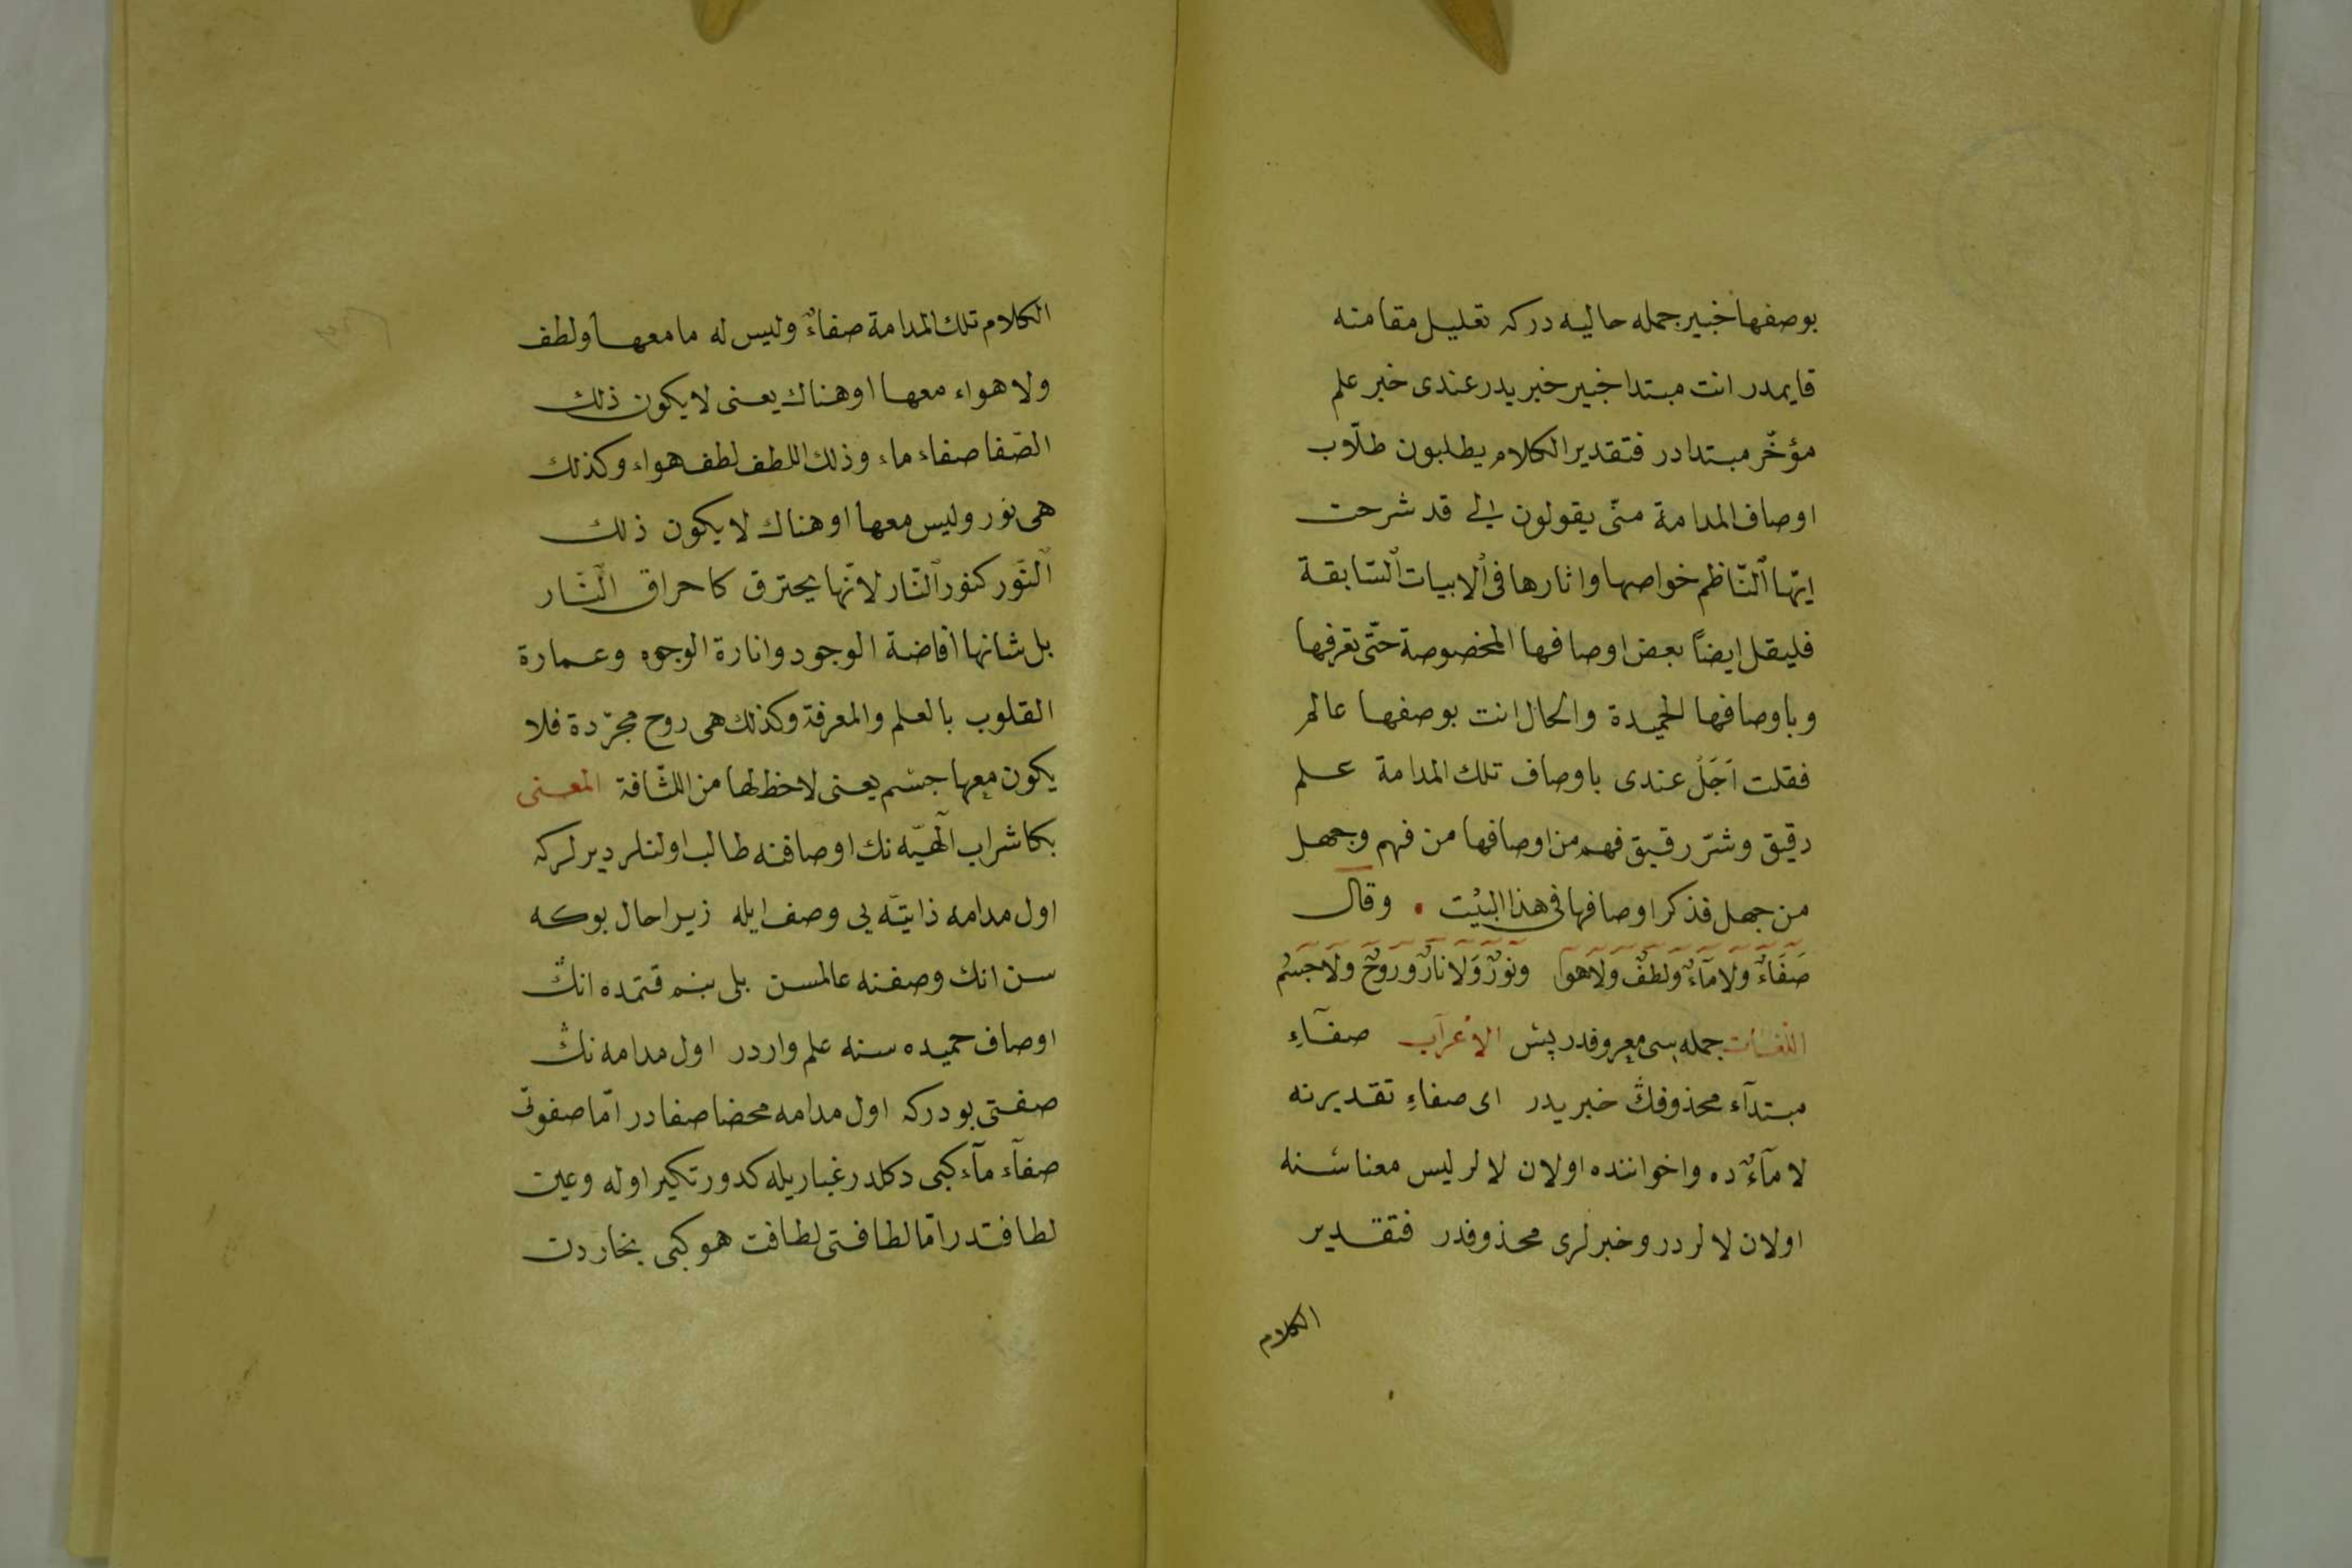 بوصفها خبير جمله حاليه دركه تعليل مقامنه
قايمدر انت مبتدا خبير خبريدر عندى خبر علم
مؤخّر مبتدادر فتقدير الكلام يطلبون طلّاب
اوصاف المدامة منّى يقولون لى قد شرحت
ايّها النّاظم خواصها واثارها فى الابيات السّابقة
فليقل ايضاً بعض اوصافها المخصوصة حتّى نعرفها
وباوصافها الحميدة والحال انت بوصفها عالم
فقلت اَجَلْ عندى باوصاف تلك المدامة علم
دقيق وسّر رقيق فهم من اوصافها من فهم وجهل
من جهل فذكر اوصافها فى هذا البيْت . وقال
صَفَاءٌ وَلَا مَآءٌ وَلُطفٌ وَلَا هَوا وَنورٌ وَلَا نارٌ وَروحٌ وَلَا جسْم
اللّغات جمله سى معروفدر پس الاعراب صفآءِ
مبتدآء محذوفڭ خبريدر اى صفاءِ تقديرنه
لا مآءٌ ده واخواننده اولان لا لر ليس معناسنه
اولان لا لردر وخبرلرى محذوفدر فتقدير
الكلام
الكلام تلك المدامة صفاءٌ وليس له ما معها ولطف
ولا هواء معها او هناك يعنى لا يكون ذلك
الصّفا صفاء ماء وذلك اللطف لطف هواء وكذلك
هى نور وليس معها او هناك لا يكون ذلك
النّور كنور النّار لانّها يحترق كاحراق النّار
بل شانها افاضة الوجود وانارة الوجوه وعمارة
القلوب بالعلم والمعرفة وكذلك هى روح مجرّدة فلا
يكون معها جسْم يعنى لا حظ لها من اللثافة المعنى
بكا شراب الٓهيّه نك اوصافنه طالب اولنلر ديرلركه
اول مدامه ذاتيّه يى وصف ايله زيرا حال بوكه
سن انك وصفنه عالمسن بلى بنم قتمده انڭ
اوصاف حميده سنه علم واردر اول مدامه نڭ
صفتى بودركه اول مدامه محضا صفادر امّا صفوتى
صفآء مآء كبى دكلدر غباريله كدورتكير اوله وعين
لطافتدر امّا لطافتى لطافت هو كبى بخاردن